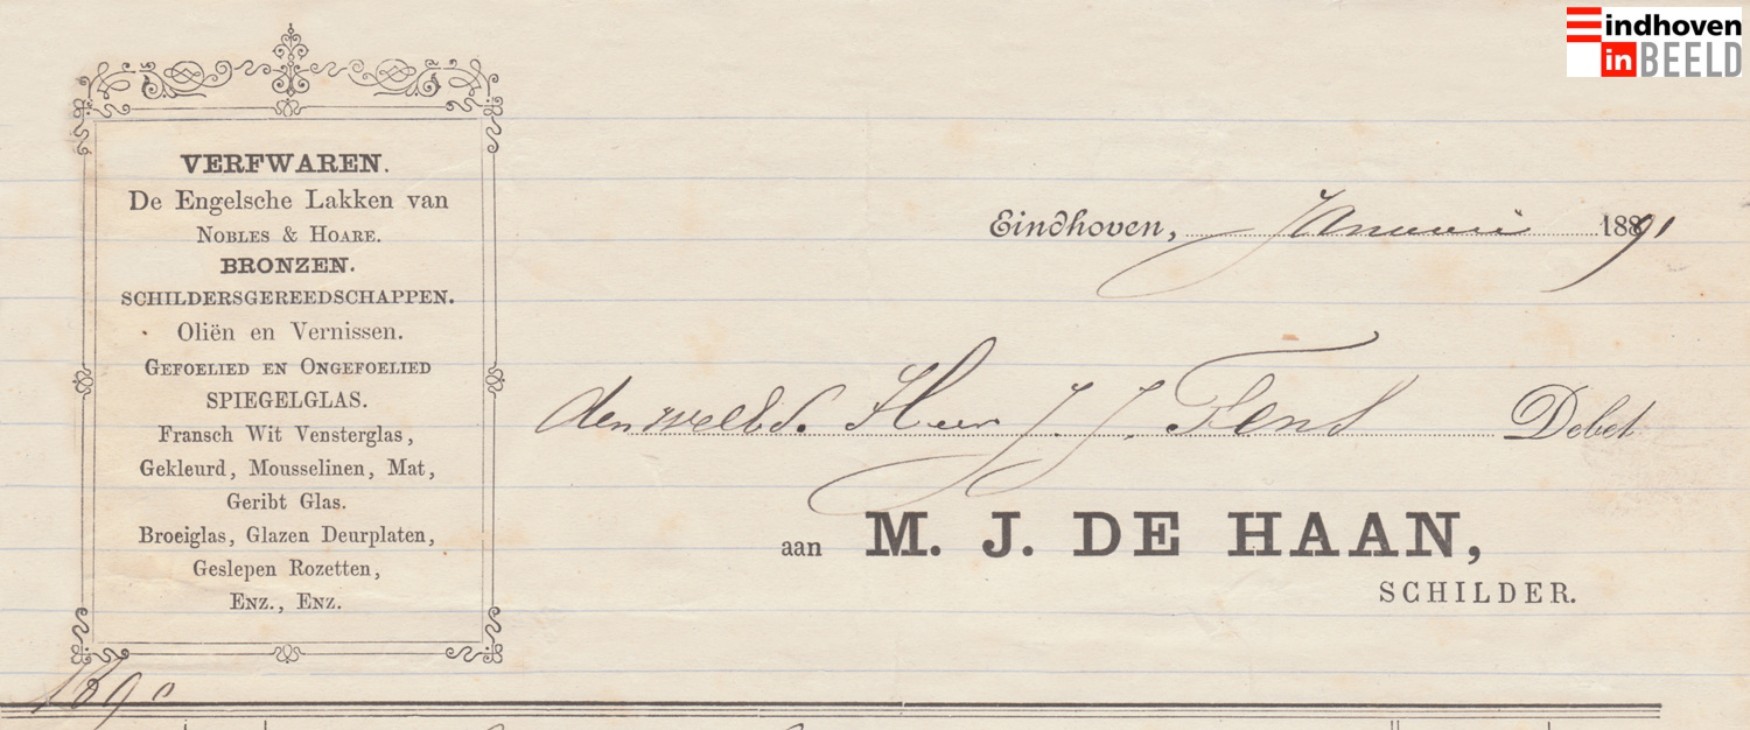 Eindhoven
in BEELD
VERFWAREN.
De Engelsche Lakken van
NOBLES & HOARE.
BRONZEN.
SCHILDERSGEREEDSCHAPPEN.
Oliën en Vernissen.
GEFOELIED EN ONGEFOELIED
SPIEGELGLAS.
Fransch Wit Vensterglas,
Gekleurd, Mousselinen, Mat,
Geribt Glas.
Broeiglas, Glazen Deurplaten,
Geslepen Rozetten,
ENZ., ENZ.
Eindhoven, Januari 1891
den Heer J. J. Debet
aan M. J. DE HAAN,
SCHILDER.
1890